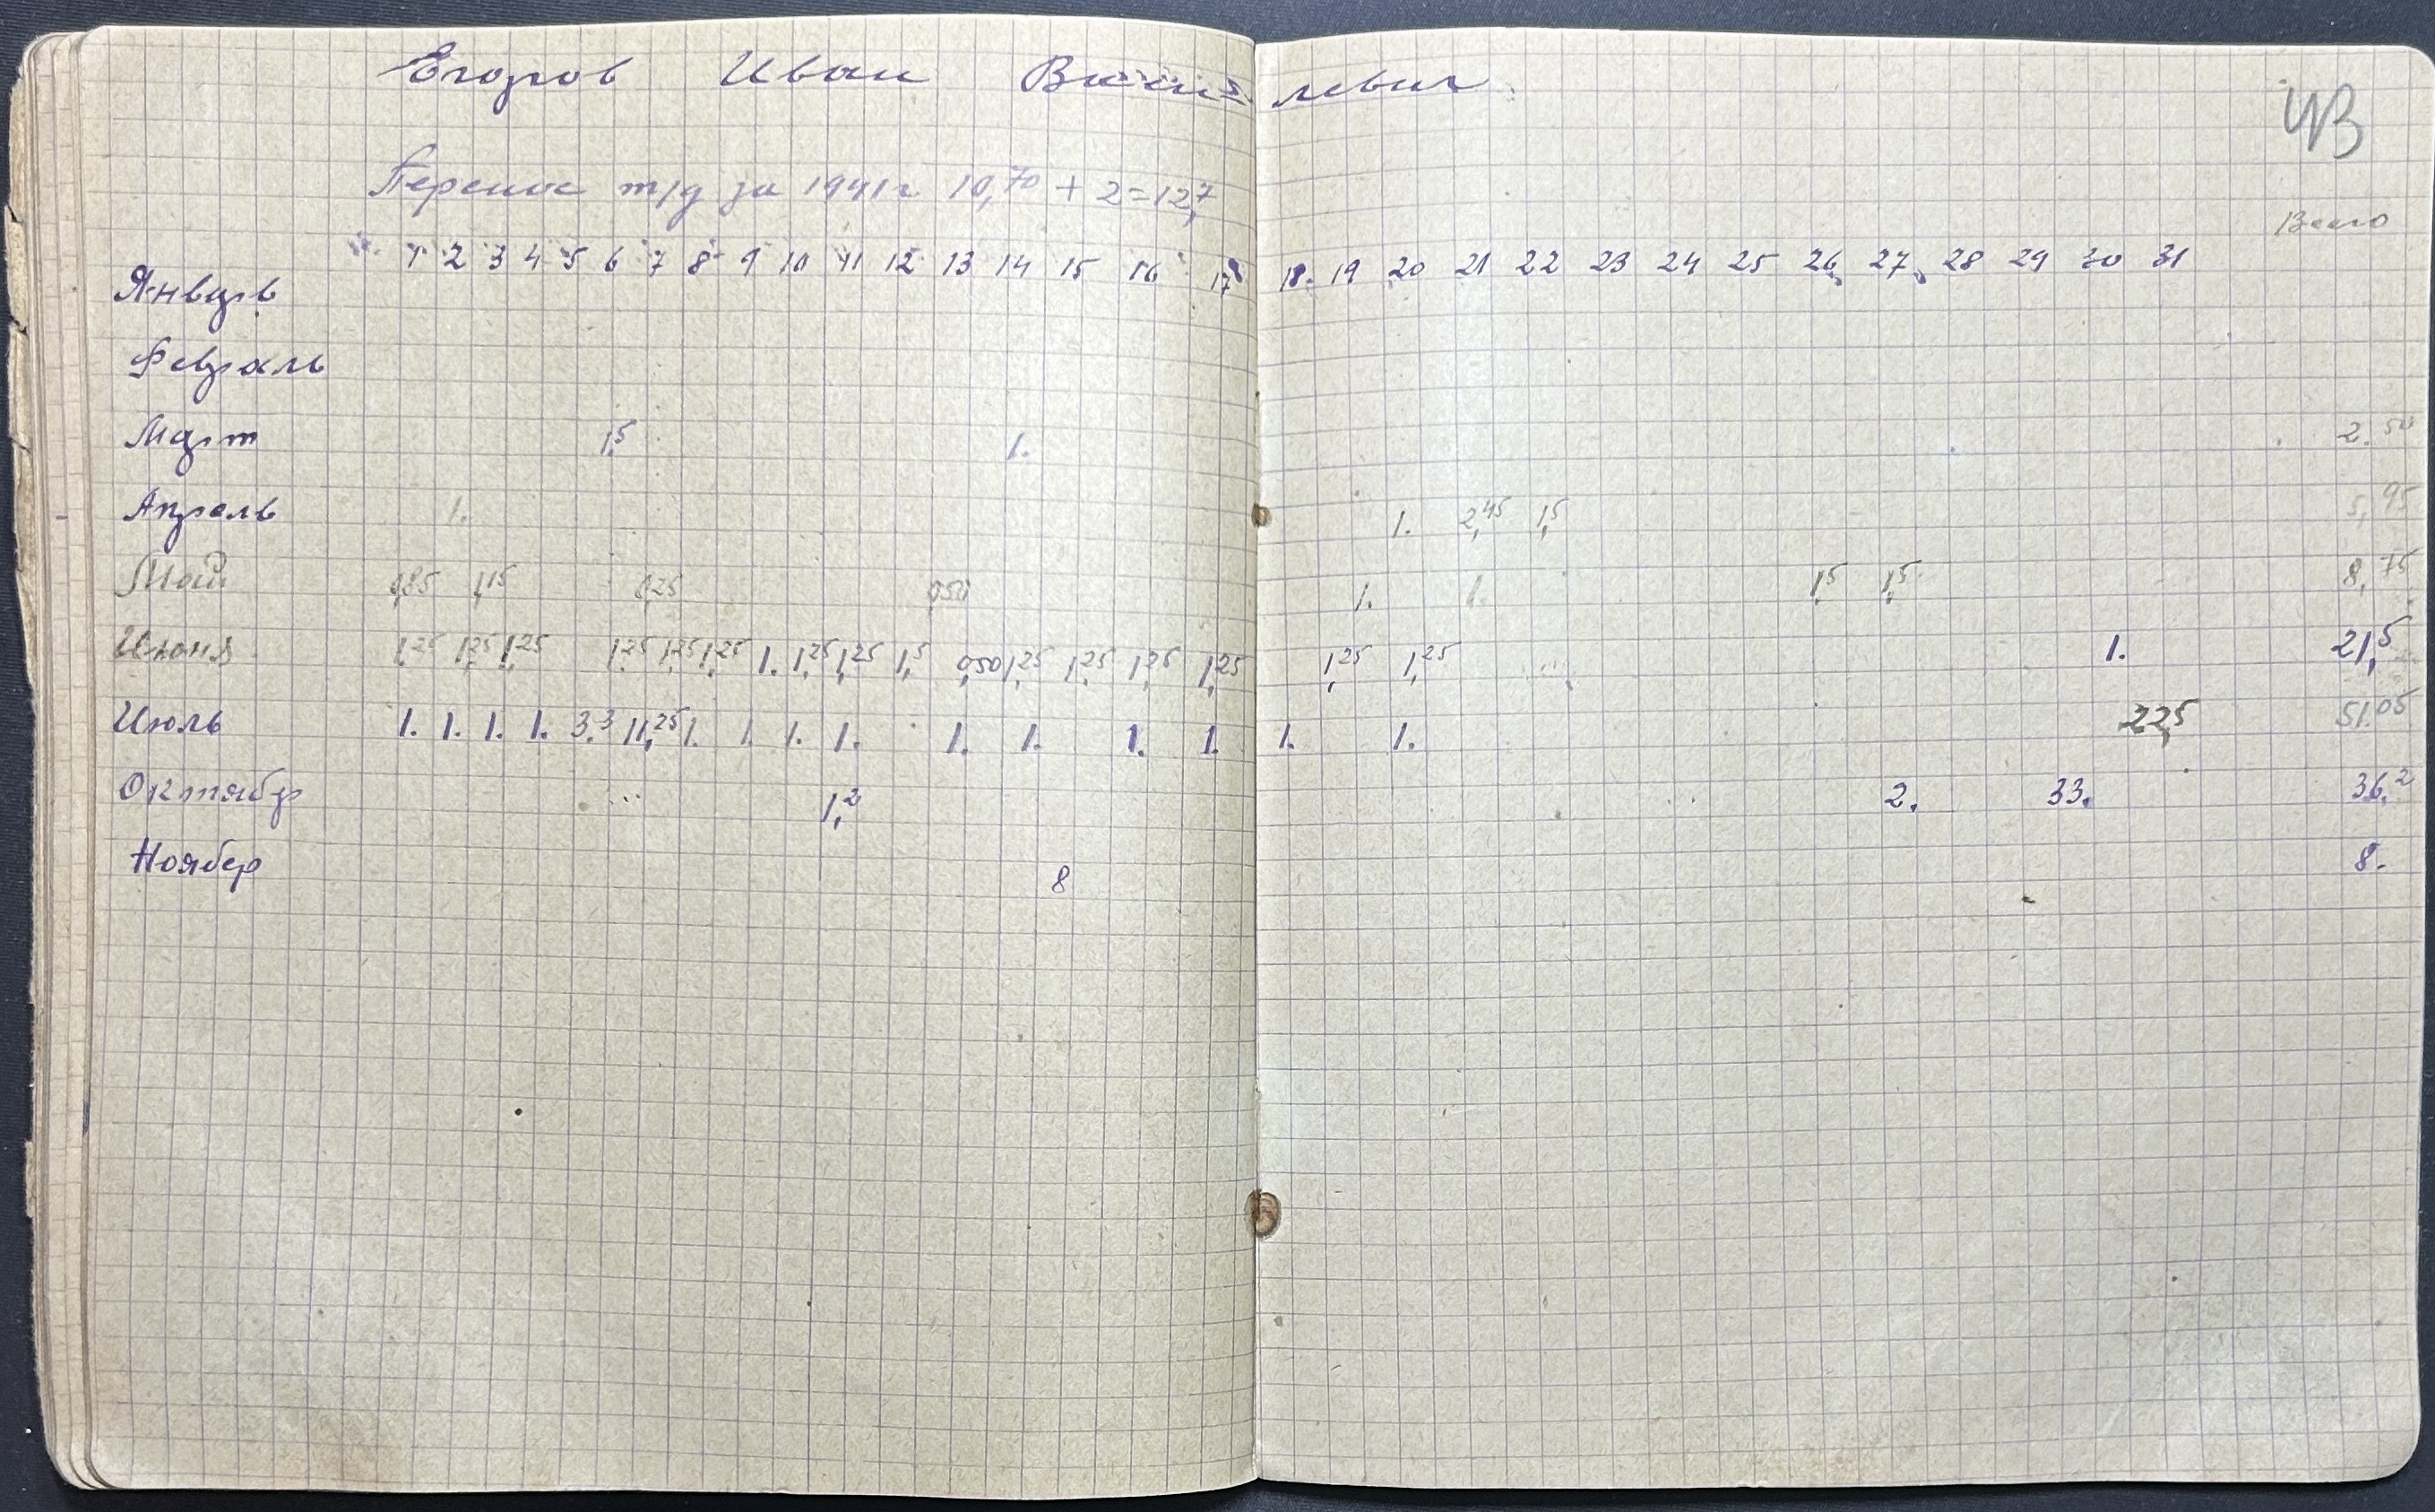 Егоров Иван Василевич
ИВ
Перенос т/д за 1941 г 10,70 + 2 = 12,7
Всего
1 2 3 4 5 6 7 8 9 10 11 12 13 14 15 16 17 18. 19 20 21 22 23 24 25 26 27 28 29 30 31
Январь
Февраль
Март 1,5 1. 2.50
Апрель 1. 1. 2,45 1,5 5,95
Май 0,85 1,15 0,25 0,50 1. 1. 1,5 1,5 8,75
Июня 1,25 1,25 1,25 1,25 1,25 1,25 1. 1,25 1,25 1,5 0,50 1,25 1,25 1,25 1,25 1,25 1,25 1. 21,5
Июль 1. 1. 1. 1. 3.3 11,25 1. 1. 1. 1. 1. 1. 1. 1. 1. 1. 22,5 51.05
Октябр 1,2 2. 33. 36,2
Ноябер 8 8.